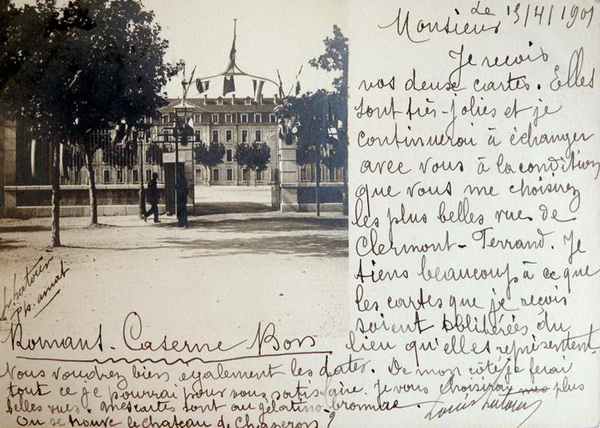 de 13/4/1901
Monsieur
Je reçois
vos deux cartes. Elles
sont très-jolies et je
continuerai à échanger
avec vous à la condition
que vous me choisirez
les plus belles vues de
Clermont-Ferrand. Je
tiens beaucoup à ce que
les cartes que je reçois
soient oblitérées du
lieu qu'elles représentent.
Romans. Caserne Bon
Vous voudrez bien également les dater. De mon côté je ferai
tout ce je pourrai pour vous satisfaire. Je vous choisirai mes plus
belles vues. mes cartes sont au gélatino-bromure.
Où se trouve le château de Chazeron?